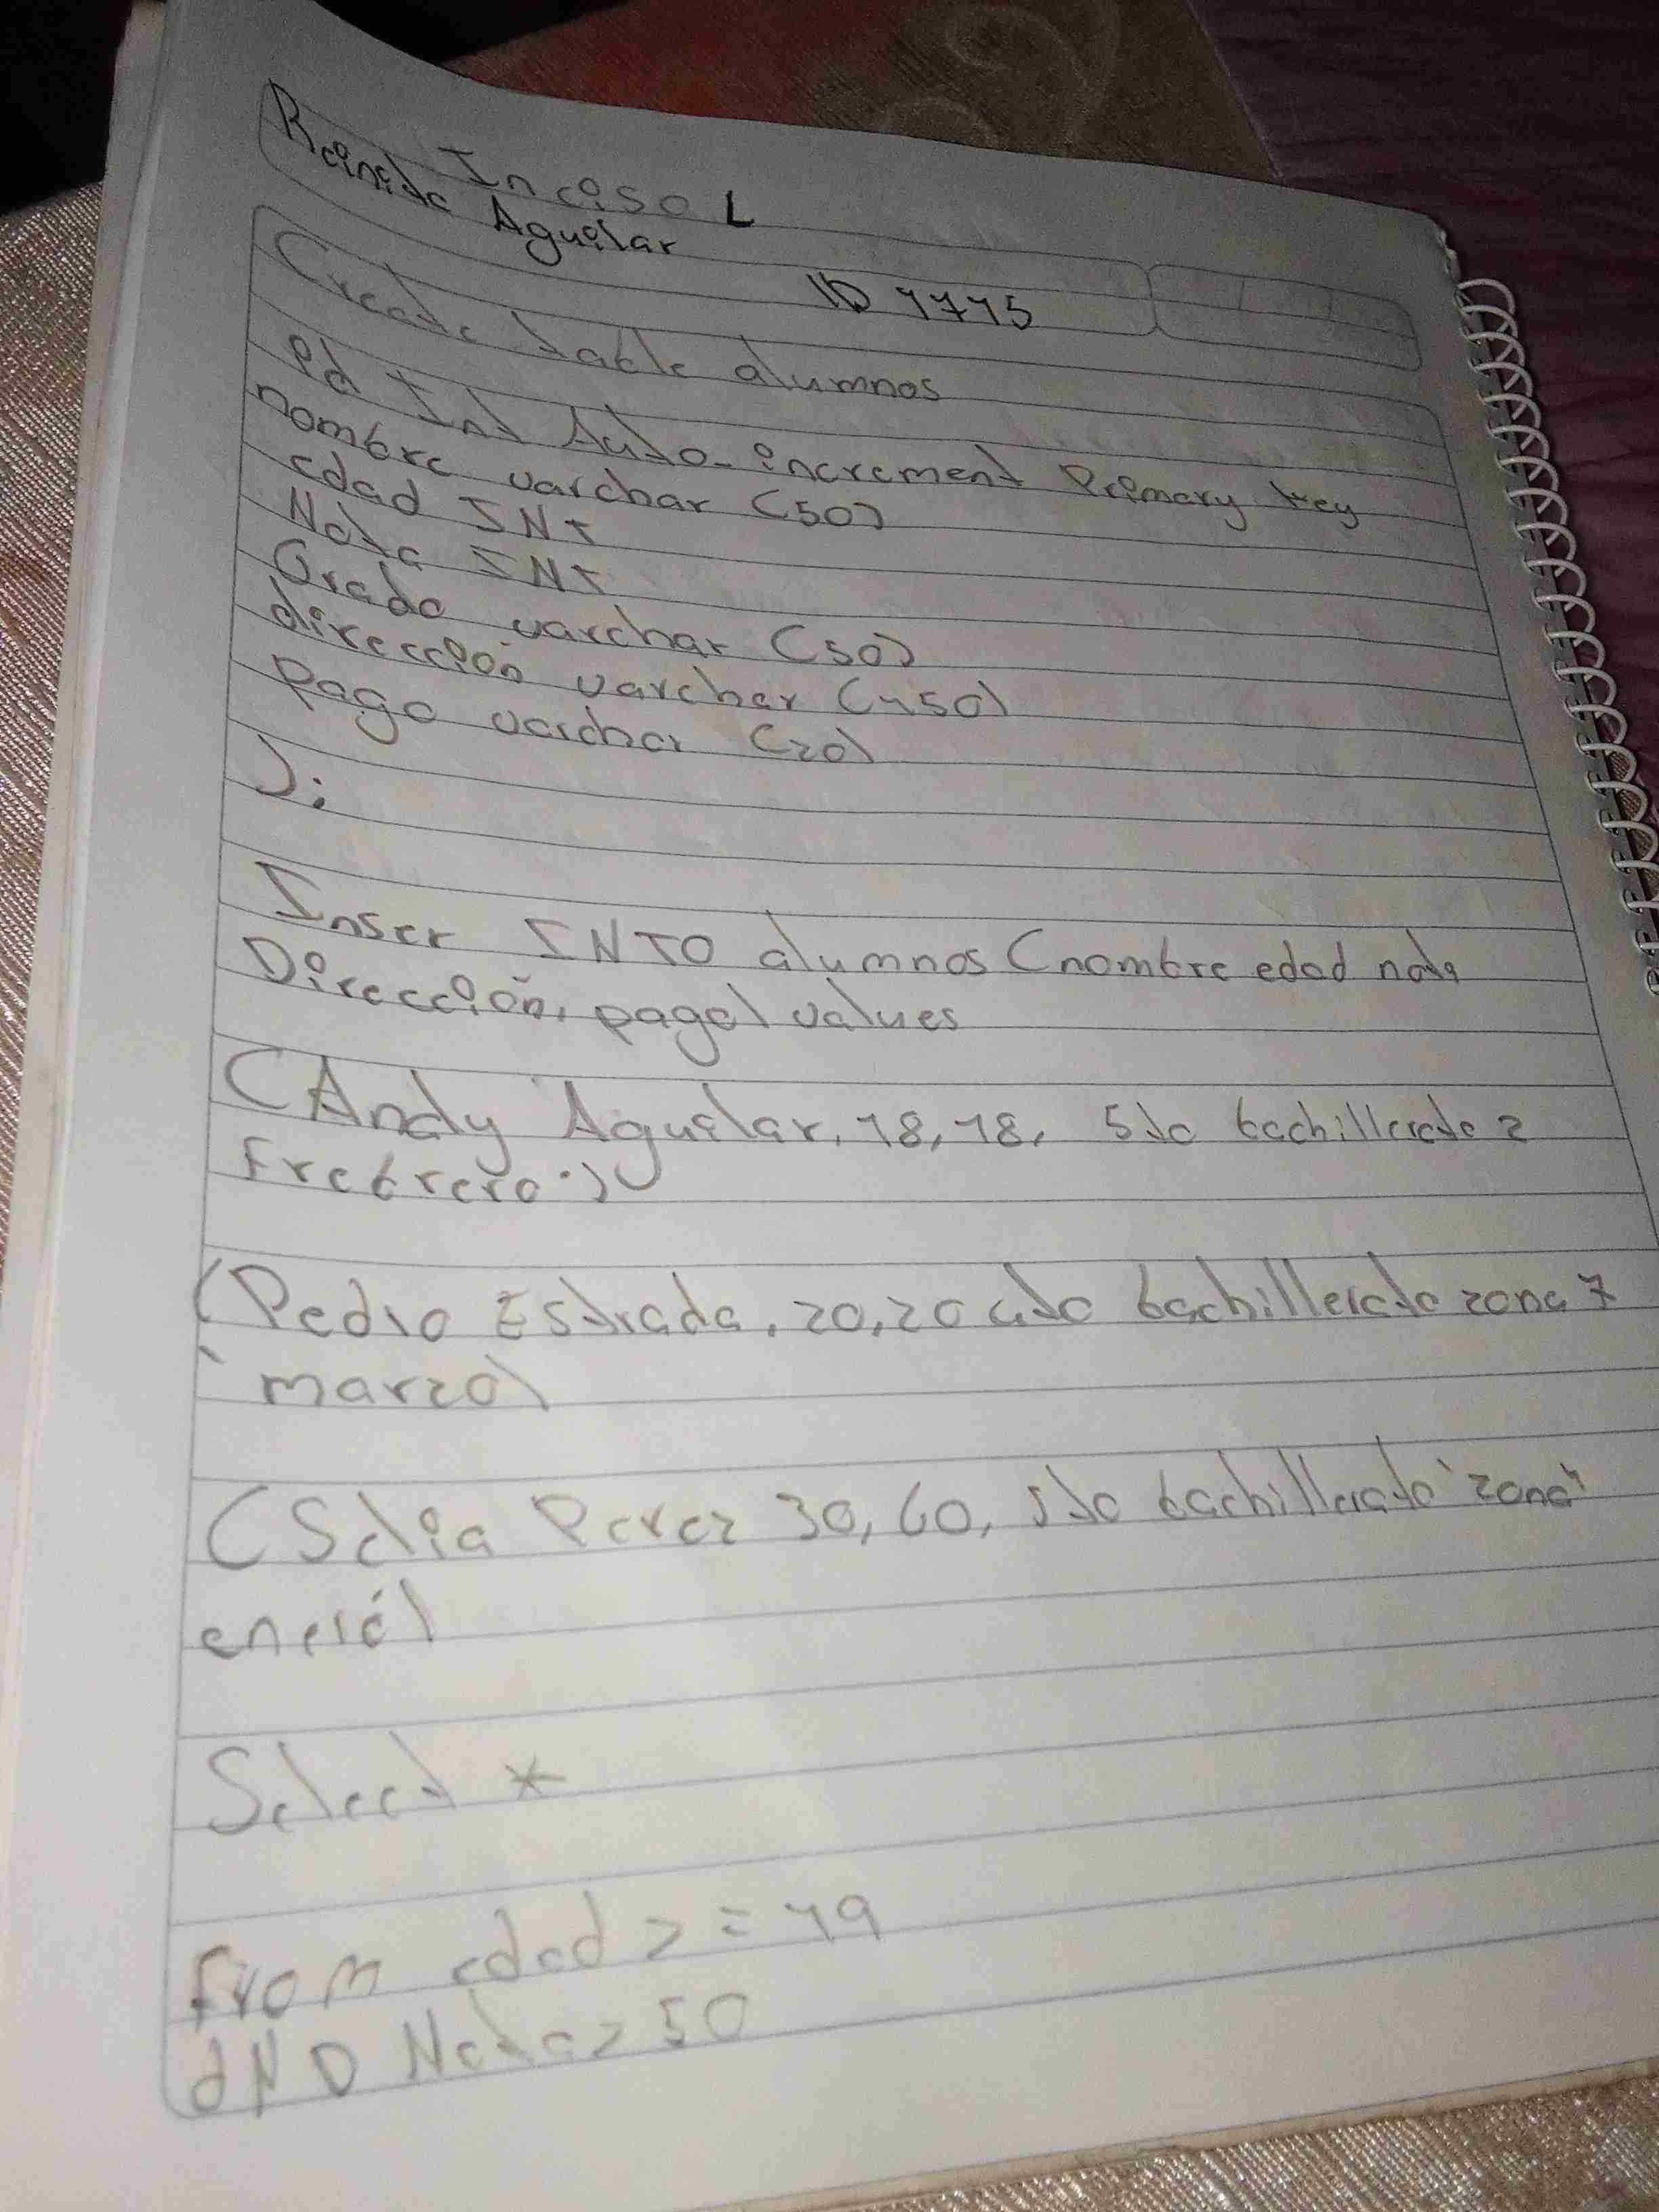 Inciso L
Aguilar
ID 1775
Create table alumnos
id Int Auto-increment Primary key
nombre varchar (50)
edad INT
Nota INT
Grado varchar (50)
dirección varchar (150)
Pago varchar (20)
);
Inser INTO alumnos (nombre edad nota
Dirección, pago) values
(Andy Aguilar, 18, 18, 5to bachillerato 2
Frebrero.)
(Pedro Estrada, 20, 20 4to bachillerato zona 7
marzo)
(Selia Perez 30, 60, 5to bachillerato "zona"
Select *
From edad >= 19
AND Nota > 50